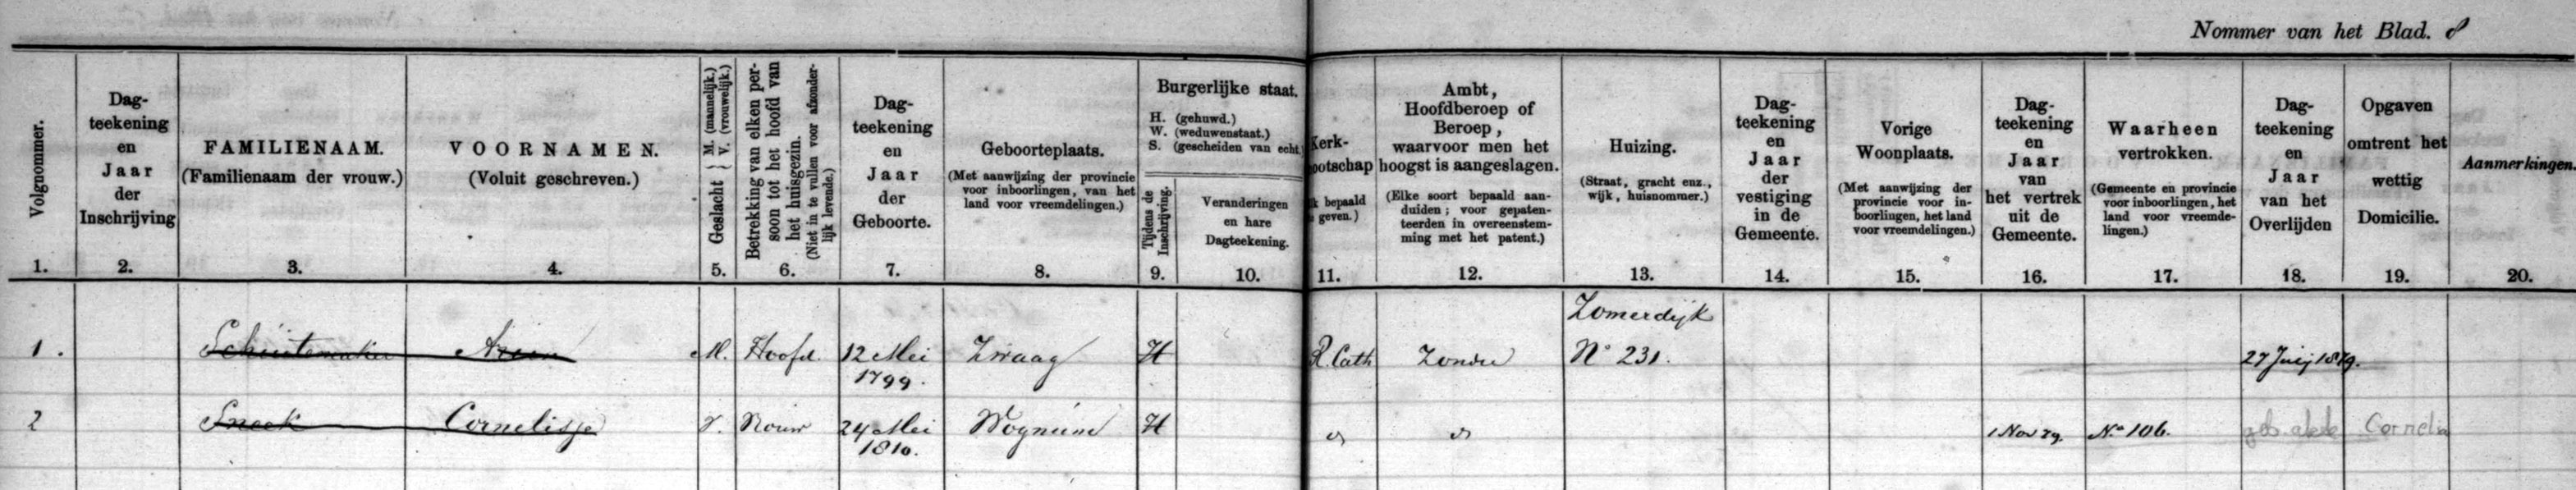 Nommer van het Blad. 8
Volgnommer.
1.
Dag-
teekening
en
Jaar
der
Inschrijving
2.
FAMILIENAAM.
(Familienaam der vrouw.)
3.
VOORNAMEN.
(Voluit geschreven.)
4.
Geslacht { M. (mannelijk.)
V. (vrouwelijk.)
5.
Betrekking van elken per-
soon tot het hoofd van
het huisgezin.
(Niet in te vullen voor afzonder-
lijk levende.)
6.
Dag-
teekening
en
Jaar
der
Geboorte.
7.
Geboorteplaats.
(Met aanwijzing der provincie
voor inboorlingen, van het
land voor vreemdelingen.)
8.
Burgerlijke staat.
H. (gehuwd.)
W. (weduwenstaat.)
S. (gescheiden van echt.)
Tijdens de
Inschrijving.
9.
Veranderingen
en hare
Dagteekening.
10.
Kerk-
ootschap
bepaald
geven.)
11.
Ambt,
Hoofdberoep of
Beroep,
waarvoor men het
hoogst is aangeslagen.
(Elke soort bepaald aan-
duiden; voor gepaten-
teerden in overeenstem-
ming met het patent.)
12.
Huizing.
(Straat, gracht enz.,
wijk, huisnommer.)
13.
Dag-
teekening
en
Jaar
der
vestiging
in de
Gemeente.
14.
Vorige
Woonplaats.
(Met aanwijzing der
provincie voor in-
boorlingen, het land
voor vreemdelingen.)
15.
Dag-
teekening
en
Jaar
van
het vertrek
uit de
Gemeente.
16.
Waarheen
vertrokken.
(Gemeente en provincie
voor inboorlingen, het
land voor vreemde-
lingen.)
17.
Dag-
teekening
en
Jaar
van het
Overlijden
18.
Opgaven
omtrent het
wettig
Domicilie.
19.
Aanmerkingen.
20.
Zomerdijk
1. Schuitemaker Arien M. Hoofd. 12 Mei Zwaag H R. Cath Zonder No 231. 27 Juij 1879.
1799.
2 Sneek Cornelisje V. Vrouw 24 Mei Wognum H 1 Nov 79. No 106. Cornelia
1810.